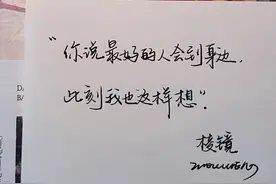 “你说最好的人会到身边，
此刻我也这样想”。
棱镜